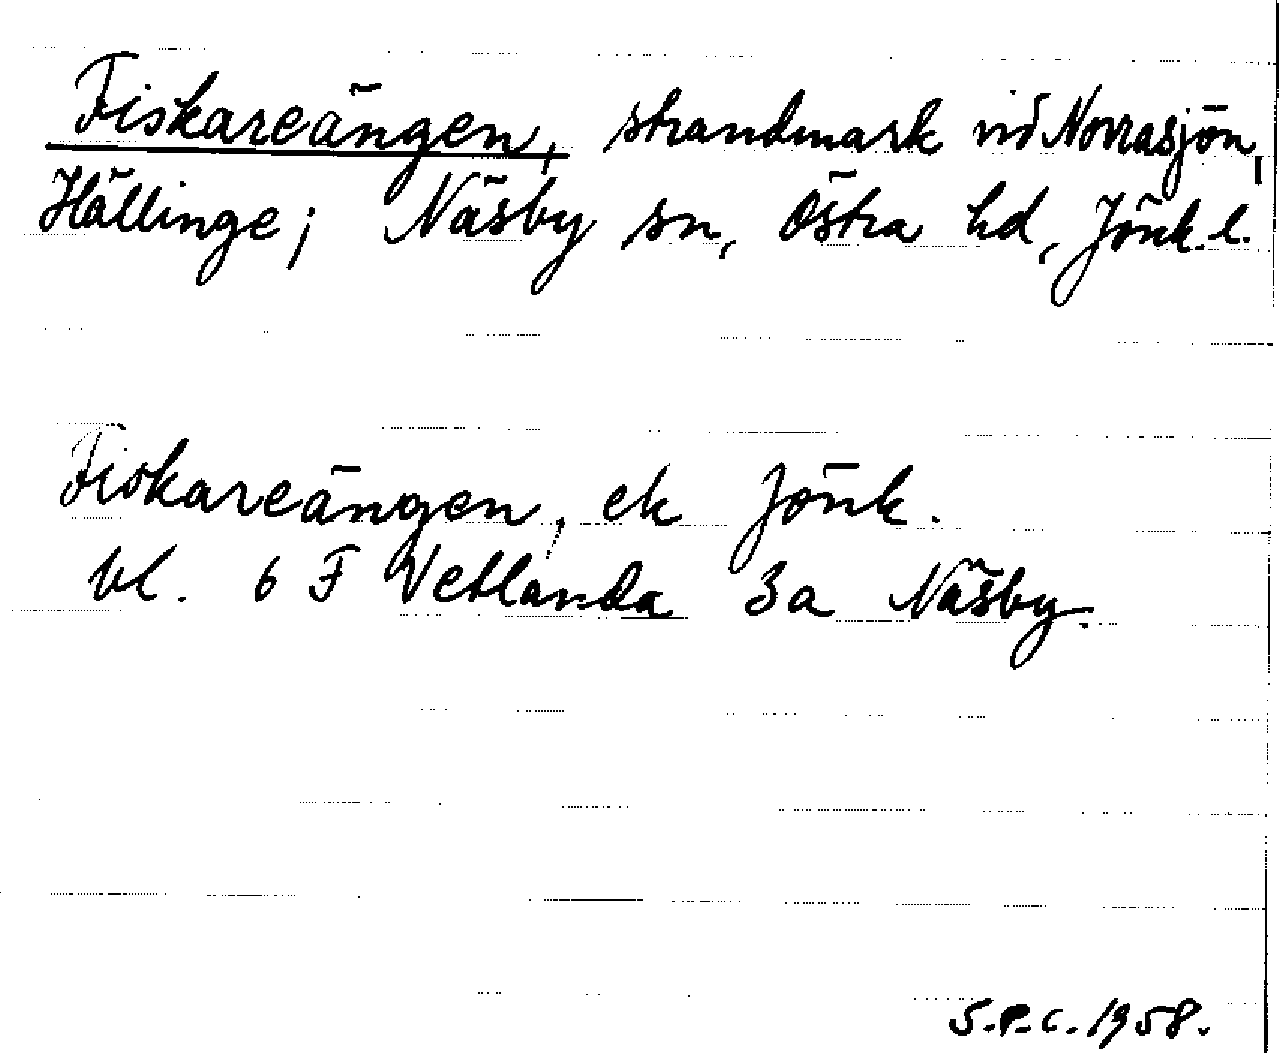 Fiskareängen, strandmark vid Norrasjön,
Hällinge; Näsby sn, Östra hd, Jönk. l.
Fiskareängen, ek Jönk.
bl. 6 F Vetlanda 3a Näsby.
S.P.C. 1958.